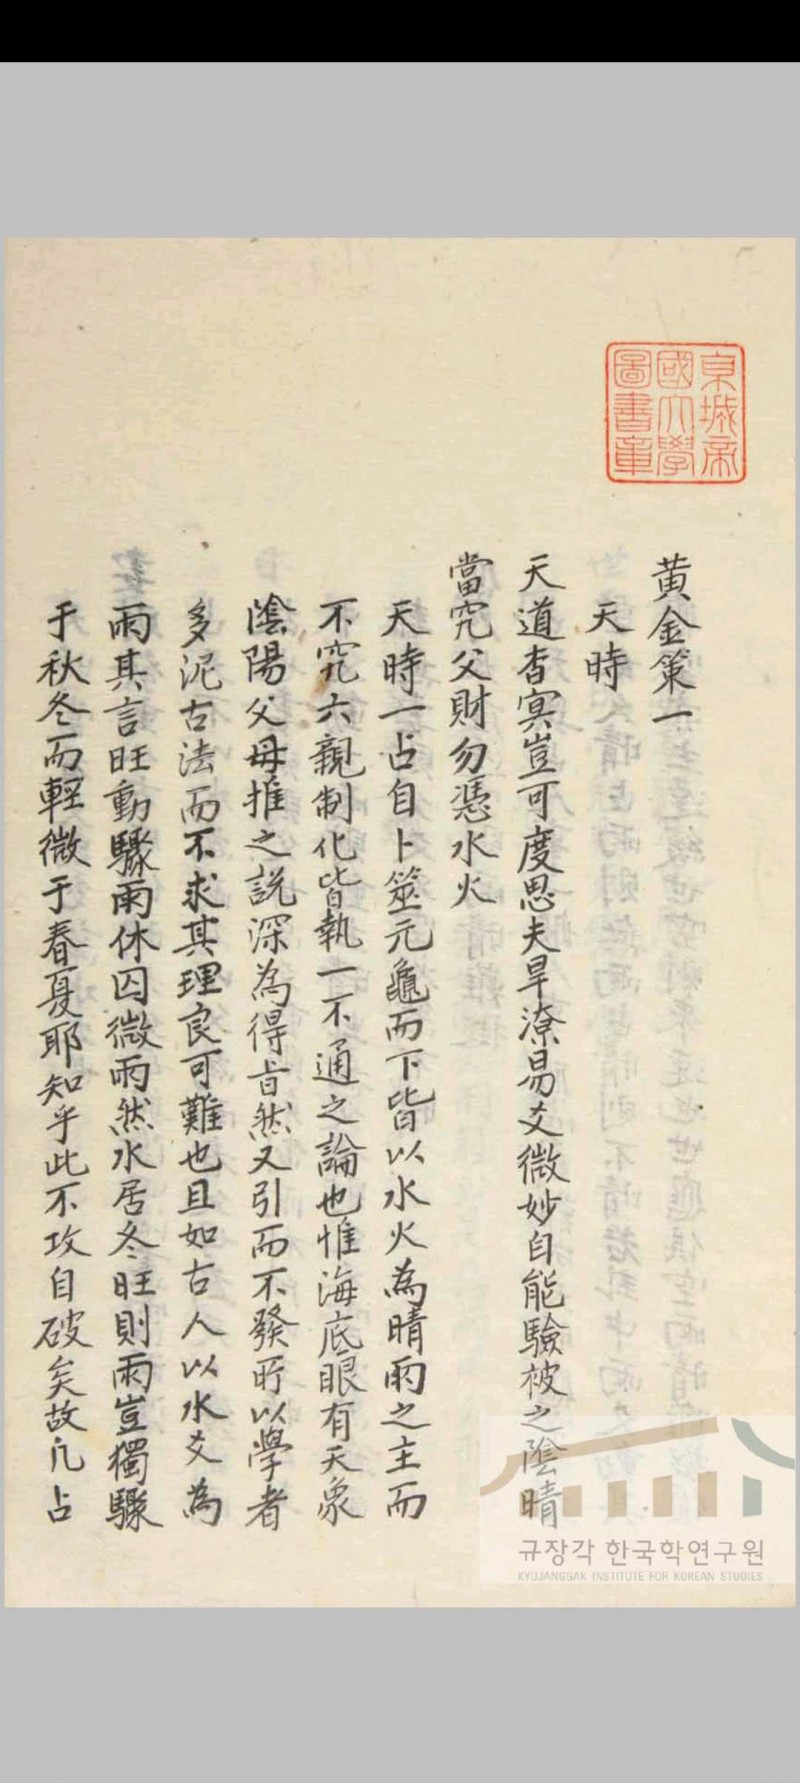 京城帝
國大學
圖書章
黃金策一
天時
天道杳冥豈可度思夫旱潦易爻微妙自能驗彼之陰晴
當究父財勿憑水火
天時一占自卜筮元龜而下皆以水火為晴雨之主而
不究六親制化皆執一不通之論也惟海底眼有天象
陰陽父母推之說深為得旨然又引而不發所以學者
多泥古法而不求其理良可難也且如古人以水爻為
雨其言旺動驟雨休囚微雨然水居冬旺則雨豈獨驟
于秋冬而輕微于春夏耶知乎此不攻自破矣故凡占
규장각 한국학연구원
KYUJANGGAK INSTITUTE FOR KOREAN STUDIES